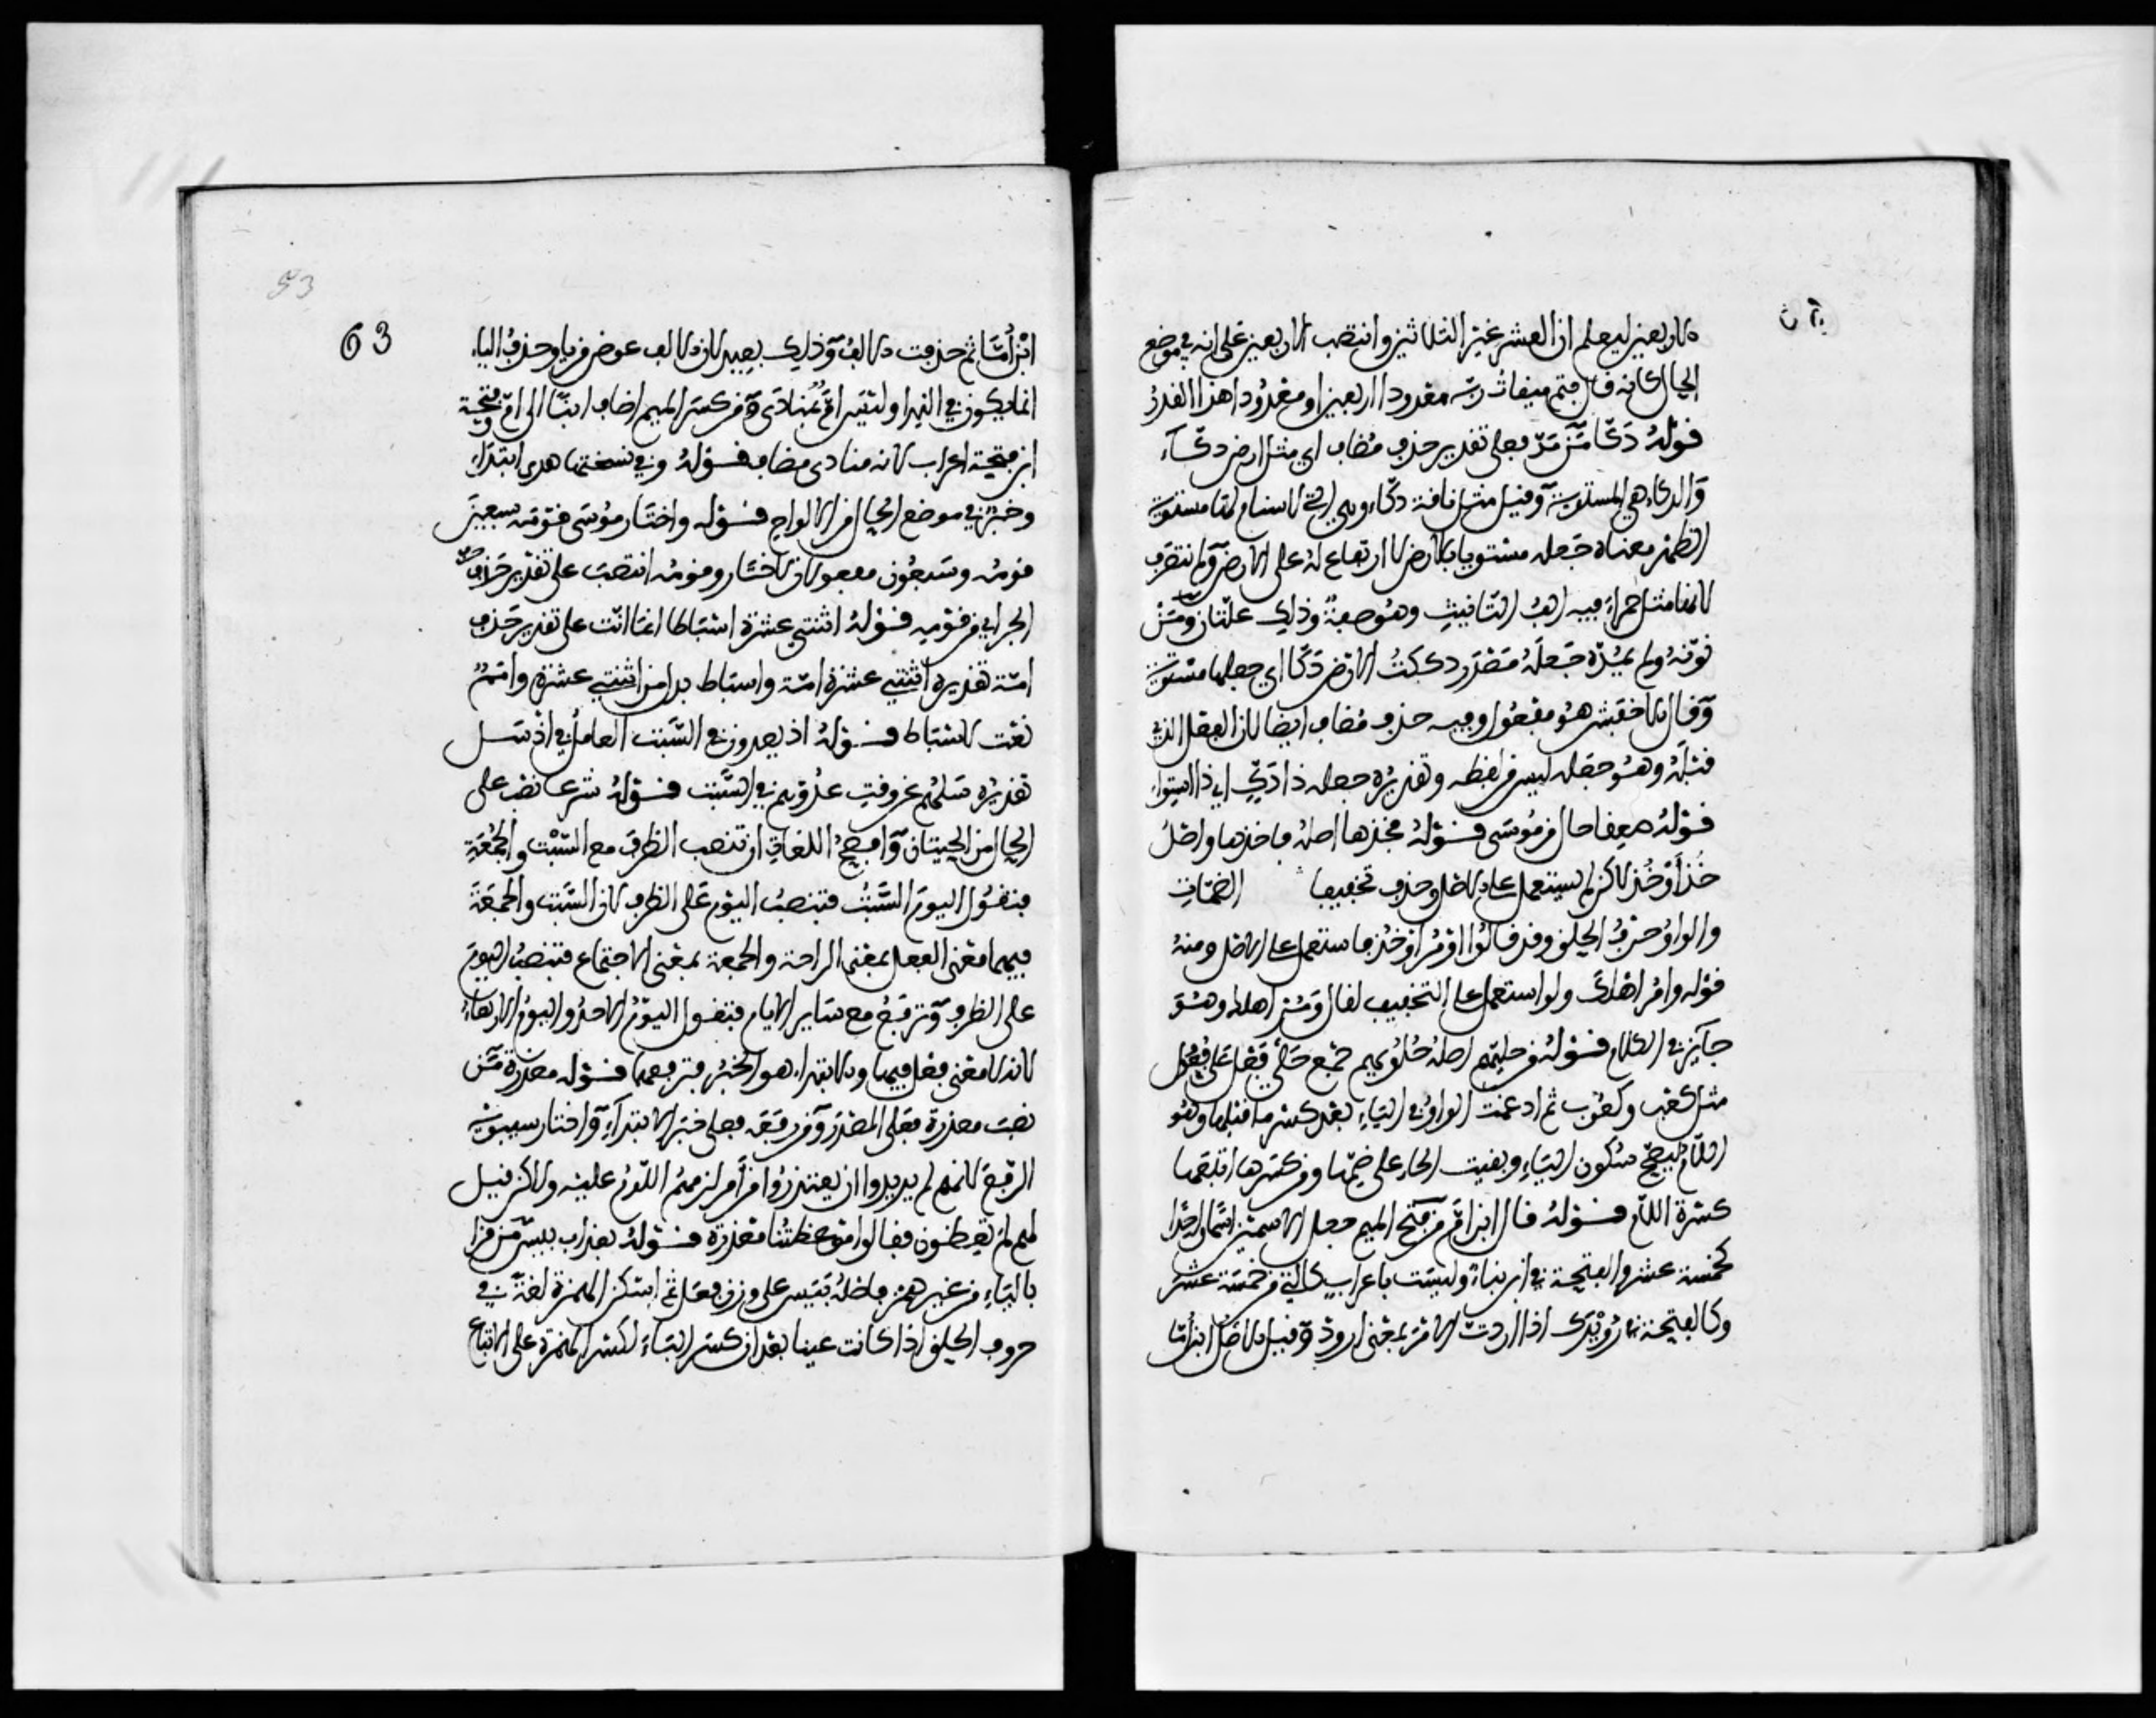 بالاربعين ليعلم ان العشر غير الثلاثين وانتصب الاربعين على انه في موضع
الحال كانه قال فتم ميقات ربه معدودا اربعين او معدودا هذا القدر
قوله دكا من مد فعلى تقدير حذف مضاف اي مثل ارض دكاء
والدكاء هي المستوية وقيل مثل ناقة دكاء وهي التي لا سنام لها مستوية
الظهر معناه جعله مستويا بالارض لا ارتفاع له على الارض ولم تنصرف
لانها مثل حمراء فيه الف التانيث وهو صفة وذلك علتان ومن
نونه ولم يمده جعله مصدر دككت الارض دكا اي جعلها مستوية
وقال الاخفش هو مفعول وفيه حذف مضاف ايضا لان الفعل الذي
قبله وهو جعله ليس من لفظه وتقديره جعله ذا دك اي ذا استواء
قوله صعقا حال من موسى قوله فخذها اصله فاخذها واصل
خذ أوخذ لاكن لم يستعمل على الاصل وحذف تخفيفا الضمات
والواو حرف الحلق وقد قالوا اومر اوخذ فاستعمل على الاصل ومنه
قوله وامر اهلك ولو استعمل على التخفيف لقال ومر اهلك وهو
جايز في الكلام قوله من حليهم اصله حلويهم جمع حلي فعل على فعول
مثل كعب وكعوب ثم ادغمت الواو في الياء بعد كسر ما قبلها وهو
اللام ليصح سكون الياء وبقيت الحاء على ضمها ومن كسرها اتبعها
كسرة اللام قوله قال ابن ام من فتح الميم جعل الاسمين اسما واحدا
كخمسة عشر والفتحة في ابن بناء وليست باعراب كالتي في خمسة عشر
وكالفتحة في رويدك اذا اردت الامر بمعنى ارود وقيل الاصل ابن اما
53
63
ابن أما ثم حذفت الالف وذلك بعيد لان الالف عوض من ياء وحذف الياء
انما يكون في النداء وليس ام بمنادى ومن كسر الميم اضاف ابنا الى ام وفتحة
ابن فتحة اعراب لانه منادى مضاف قوله وفي نسختها هدى ابتداء
وخبر في موضع الحال من الالواح قوله واختار موسى قومه سبعين
قومه وسبعون مفعولان لاختار وقومه انتصب على تقدير حذف حرف
الجر اي من قومه قوله اثنتي عشرة اسباطا انما انث على تقدير حذف
امة تقديره اثنتي عشرة امة واسباط بدل من اثنتي عشرة وامم
نعت لاسباط قوله اذ يعدون في السبت العامل في اذ سل
تقديره سلهم عن وقت عدوهم في السبت قوله شرعا نصب على
الحال من الحيتان وافصح اللغات ان تنصب الظرف مع السبت والجمعة
فتقول اليوم السبت فتنصب اليوم على الظرف لان السبت والجمعة
فيهما معنى الفعل بمعنى الراحة والجمعة بمعنى الاجتماع فتنصب اليوم
على الظرف وترفع مع ساير الايام فتقول اليوم الاحد واليوم الاربعاء
لانه لا معنى فعل فيهما والابتداء هو الخبر فترفعهما قوله معذرة من
نصب معذرة فعلى المصدر ومن رفعه فعلى خبر الابتداء واختار سيبويه
الرفع لانهم لم يريدوا ان يعتذروا من أمر لزمهم اللوم عليه ولاكن قيل
لهم لم تعظون فقالوا موعظتنا معذرة قوله بعذاب بيس من قرا
بالياء من غير همز فاصله بئيس على وزن فعل ثم اسكن الهمزة لغة في
حروف الحلق اذا كانت عينا بعد ان كسر الباء لكسر الهمزة على الاتباع